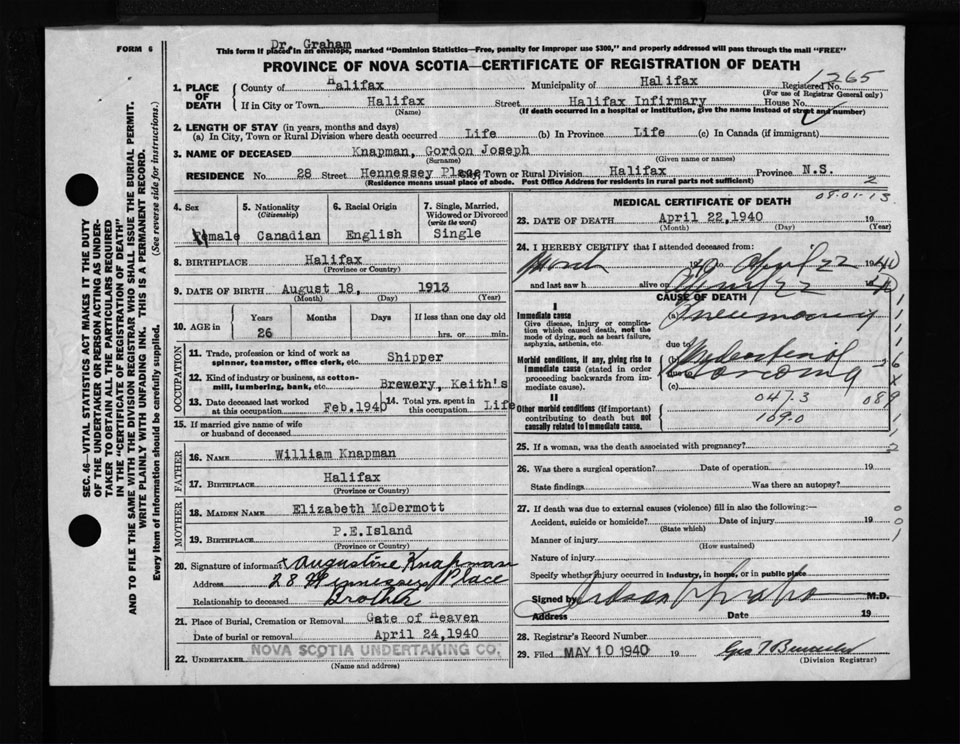 FORM 6
Dr. Graham
This form if placed in an envelope, marked "Dominion Statistics—Free, penalty for improper use $300," and properly addressed will pass through the mail "FREE"
PROVINCE OF NOVA SCOTIA—CERTIFICATE OF REGISTRATION OF DEATH
1. PLACE OF DEATH
County of Halifax Municipality of Halifax Registered No. 1265
(For use of Registrar General only)
If in City or Town Halifax Street Halifax Infirmary House No.
(Name) (If death occurred in a hospital or institution, give the name instead of street and number)
2. LENGTH OF STAY (in years, months and days)
(a) In City, Town or Rural Division where death occurred Life (b) In Province Life (c) In Canada (if immigrant)
3. NAME OF DECEASED Knapman, Gordon Joseph
(Surname) (Given name or names)
RESIDENCE No. 28 Street Hennessey Place City, Town or Rural Division Halifax Province N.S.
(Residence means usual place of abode. Post Office Address for residents in rural parts not sufficient) 2
09.01.13
4. Sex male
5. Nationality (Citizenship) Canadian
6. Racial Origin English
7. Single, Married, Widowed or Divorced (write the word) Single
8. BIRTHPLACE Halifax
(Province or Country)
9. DATE OF BIRTH August 18, 1913
(Month) (Day) (Year)
10. AGE in Years Months Days If less than one day old
26 hrs. or min.
OCCUPATION
11. Trade, profession or kind of work as spinner, teamster, office clerk, etc. Shipper
12. Kind of industry or business, as cotton-mill, lumbering, bank, etc. Brewery, Keith's
13. Date deceased last worked at this occupation Feb, 1940
14. Total yrs. spent in this occupation Life
15. If married give name of wife or husband of deceased
FATHER
16. NAME William Knapman
17. BIRTHPLACE Halifax
(Province or Country)
MOTHER
18. MAIDEN NAME Elizabeth McDermott
19. BIRTHPLACE P.E.Island
(Province or Country)
20. Signature of informant Augustine Knapman
Address 28 Hennessey Place
Relationship to deceased Brother
21. Place of Burial, Cremation or Removal Gate of Heaven
Date of burial or removal April 24,1940
22. UNDERTAKER NOVA SCOTIA UNDERTAKING CO.
(Name and address)
MEDICAL CERTIFICATE OF DEATH
23. DATE OF DEATH April 22,1940 19
(Month) (Day) (Year)
24. I HEREBY CERTIFY that I attended deceased from:
March 1940 April 22 1940
and last saw h alive on 1940
CAUSE OF DEATH
I
Immediate cause
Give disease, injury or complication which caused death, not the mode of dying, such as heart failure, asphyxia, asthenia, etc.
(a) Pneumonia
due to
Morbid conditions, if any, giving rise to Immediate cause (stated in order proceeding backwards from immediate cause).
(b) Mediastinal
due to
(c) Sarcoma
II
Other morbid conditions (if important) contributing to death but not causally related to immediate cause.
047.3
109.0
089
25. If a woman, was the death associated with pregnancy?
26. Was there a surgical operation? Date of operation 19
State findings Was there an autopsy?
27. If death was due to external causes (violence) fill in also the following:—
Accident, suicide or homicide? Date of injury 19
(State which)
Manner of injury
(How sustained)
Nature of injury
Specify whether injury occurred in industry, in home, or in public place
Signed by Judson Graham M.D.
Address Date 19
28. Registrar's Record Number
29. Filed MAY 10 1940 19
(Division Registrar)
SEC. 46—VITAL STATISTICS ACT MAKES IT THE DUTY
OF THE UNDERTAKER OR PERSON ACTING AS UNDER-
TAKER TO OBTAIN ALL THE PARTICULARS REQUIRED
IN THE "CERTIFICATE OF REGISTRATION OF DEATH"
AND TO FILE THE SAME WITH THE DIVISION REGISTRAR WHO SHALL ISSUE THE BURIAL PERMIT.
WRITE PLAINLY WITH UNFADING INK. THIS IS A PERMANENT RECORD.
Every item of information should be carefully supplied. (See reverse side for instructions.)